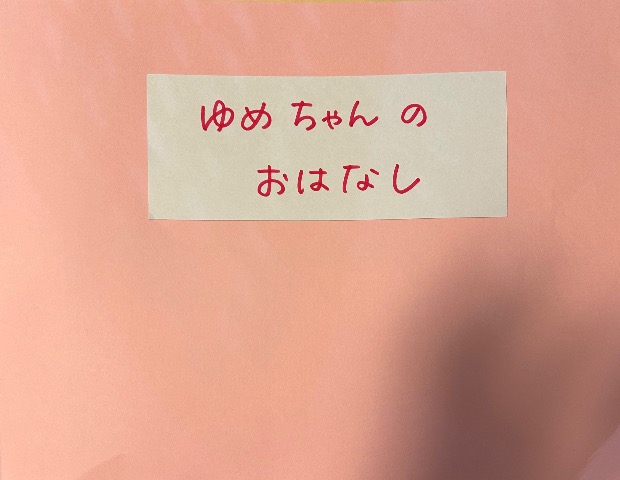 ゆめちゃんの
おはなし